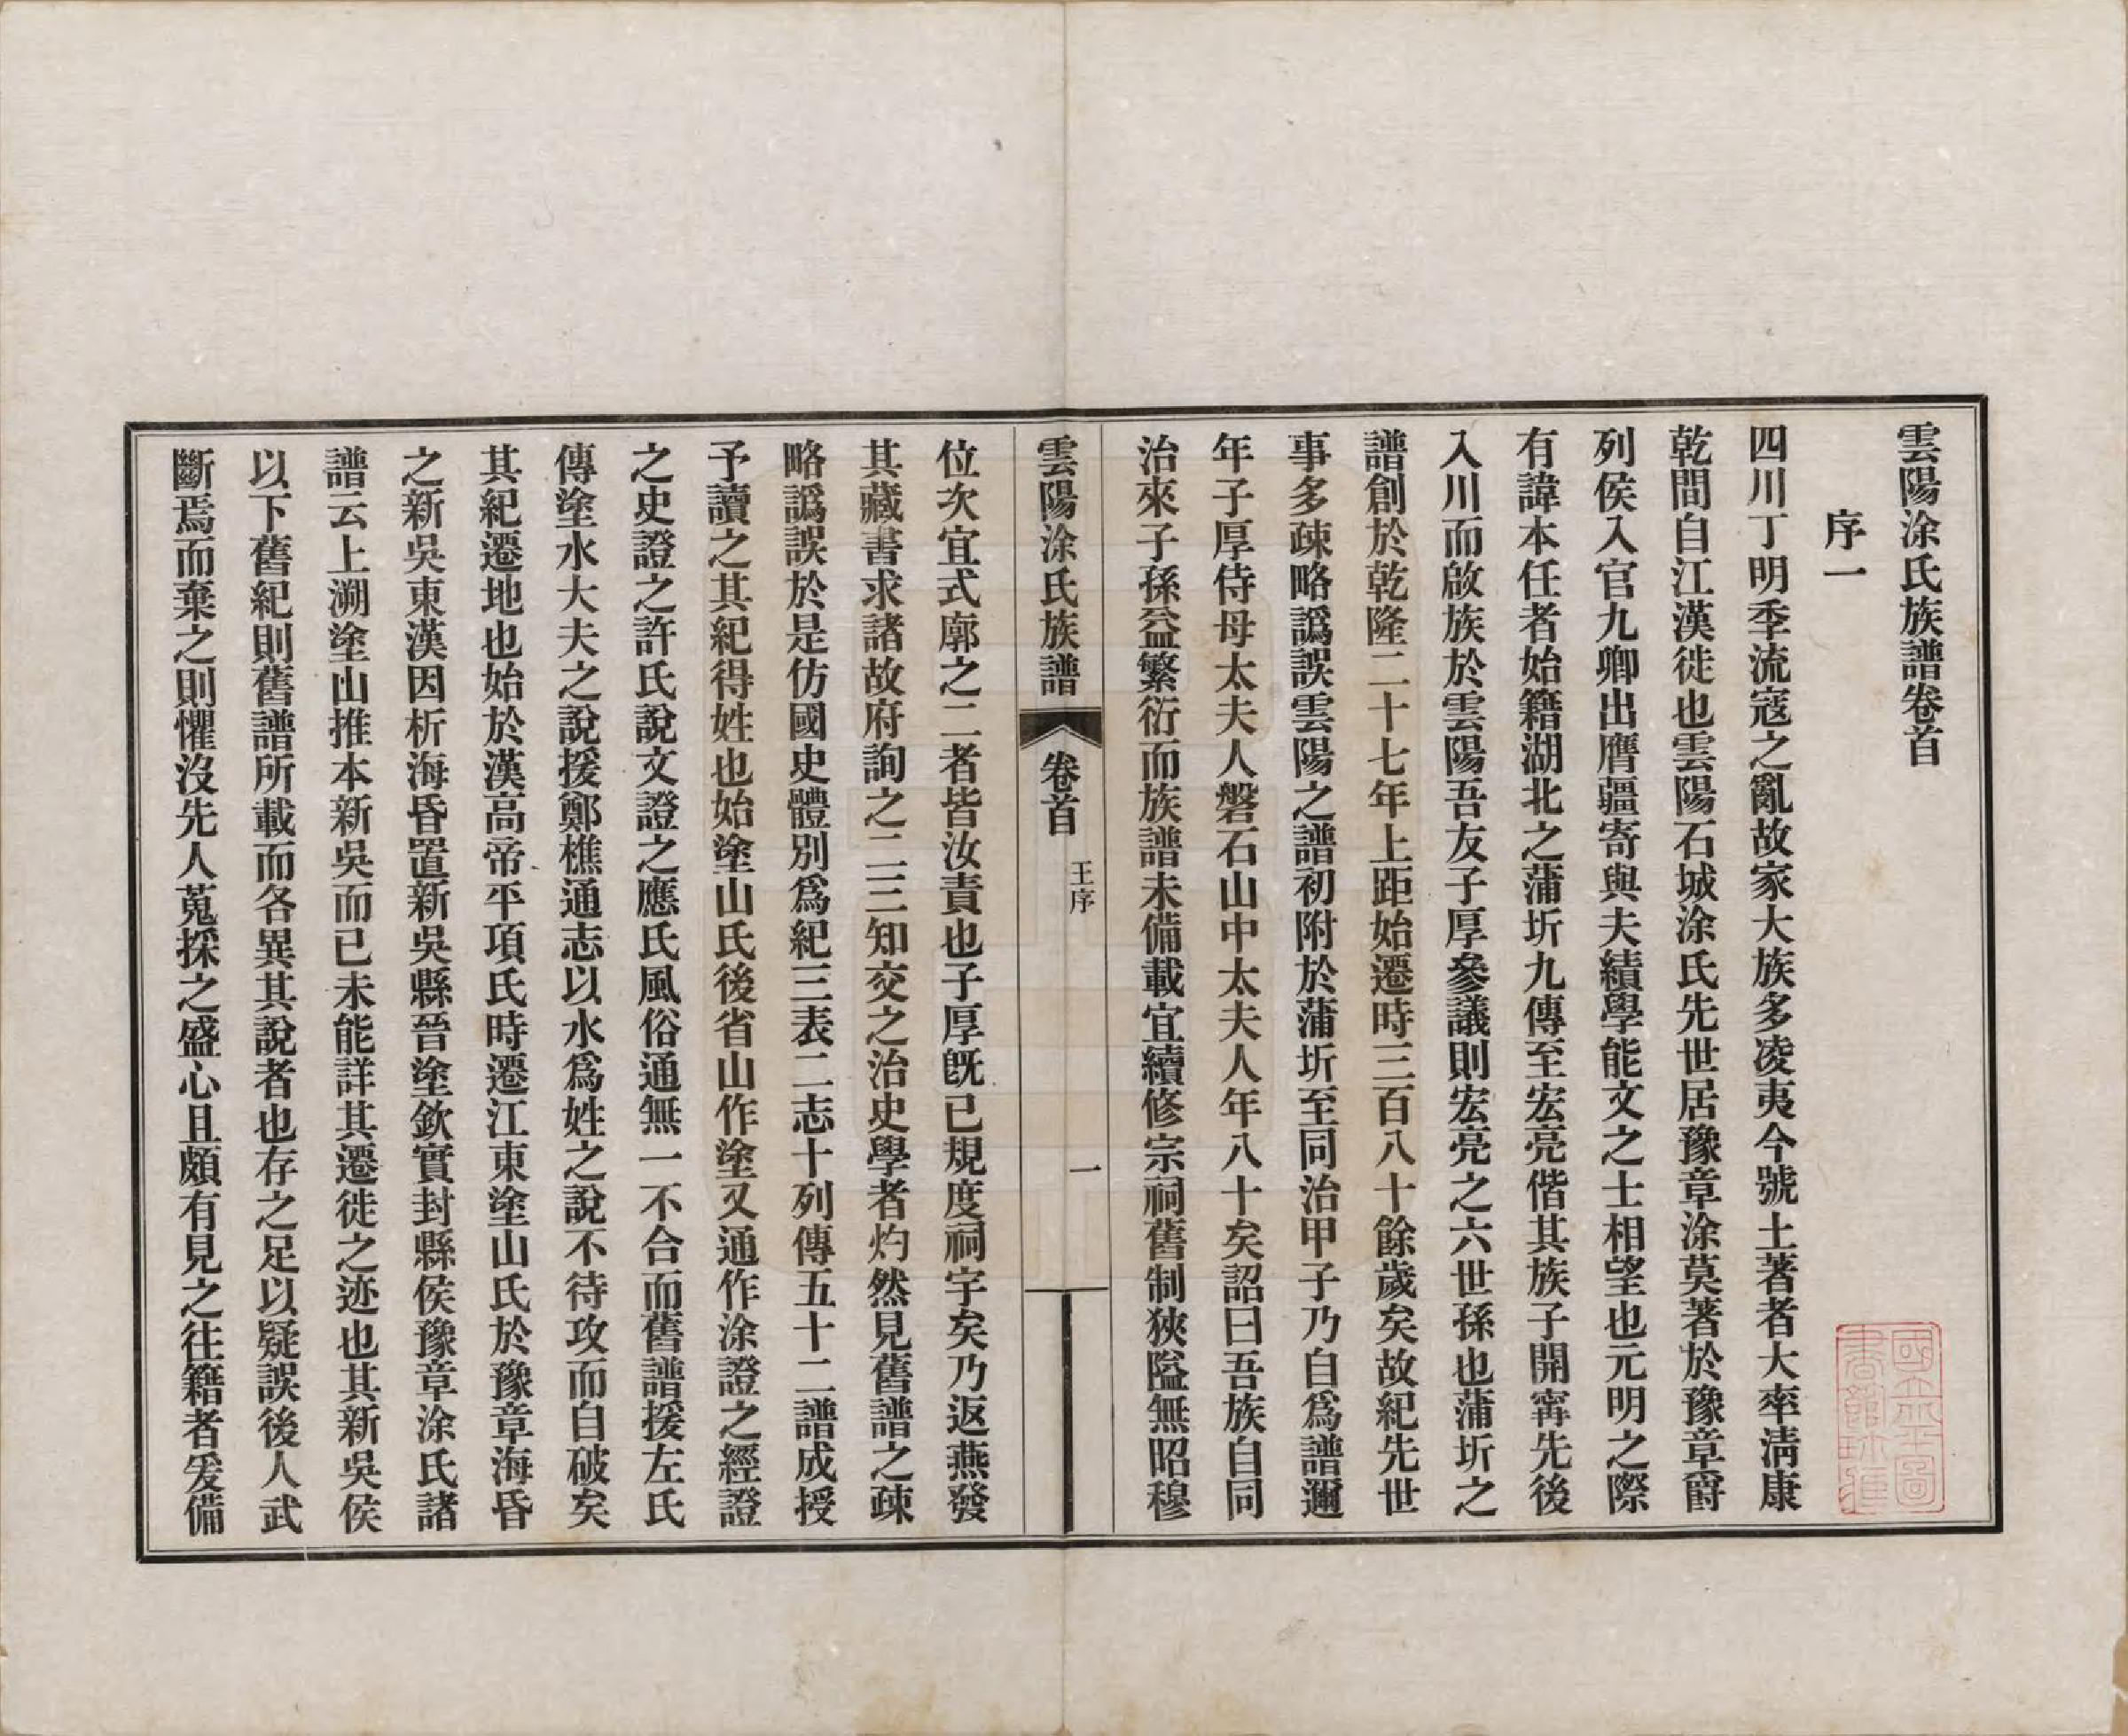 雲陽涂氏族譜卷首
序一
四川丁明季流寇之亂故家大族多凌夷今號土著者大率淸康
乾間自江漢徙也雲陽石城涂氏先世居豫章涂莫著於豫章爵
列侯入官九卿出膺疆寄與夫績學能文之士相望也元明之際
有諱本任者始籍湖北之蒲圻九傳至宏亮偕其族子開甯先後
入川而啟族於雲陽吾友子厚參議則宏亮之六世孫也蒲圻之
譜創於乾隆二十七年上距始遷時三百八十餘歲矣故紀先世
事多疎略譌誤雲陽之譜初附於蒲圻至同治甲子乃自爲譜邇
年子厚侍母太夫人磐石山中太夫人年八十矣詔曰吾族自同
治來子孫益繁衍而族譜未備載宜續修宗祠舊制狹隘無昭穆
雲陽涂氏族譜
卷首
王序
一
位次宜式廓之二者皆汝責也子厚旣已規度祠宇矣乃返燕發
其藏書求諸故府詢之二三知交之治史學者灼然見舊譜之疎
略譌誤於是仿國史體別爲紀三表二志十列傳五十二譜成授
予讀之其紀得姓也始塗山氏後省山作塗又通作涂證之經證
之史證之許氏說文證之應氏風俗通無一不合而舊譜援左氏
傳塗水大夫之說援鄭樵通志以水爲姓之說不待攻而自破矣
其紀遷地也始於漢高帝平項氏時遷江東塗山氏於豫章海昏
之新吳東漢因析海昏置新吳縣晉塗欽實封縣侯豫章涂氏諸
譜云上溯塗山推本新吳而已未能詳其遷徙之迹也其新吳侯
以下舊紀則舊譜所載而各異其說者也存之足以疑誤後人武
斷焉而棄之則懼沒先人蒐採之盛心且頗有見之往籍者爰備